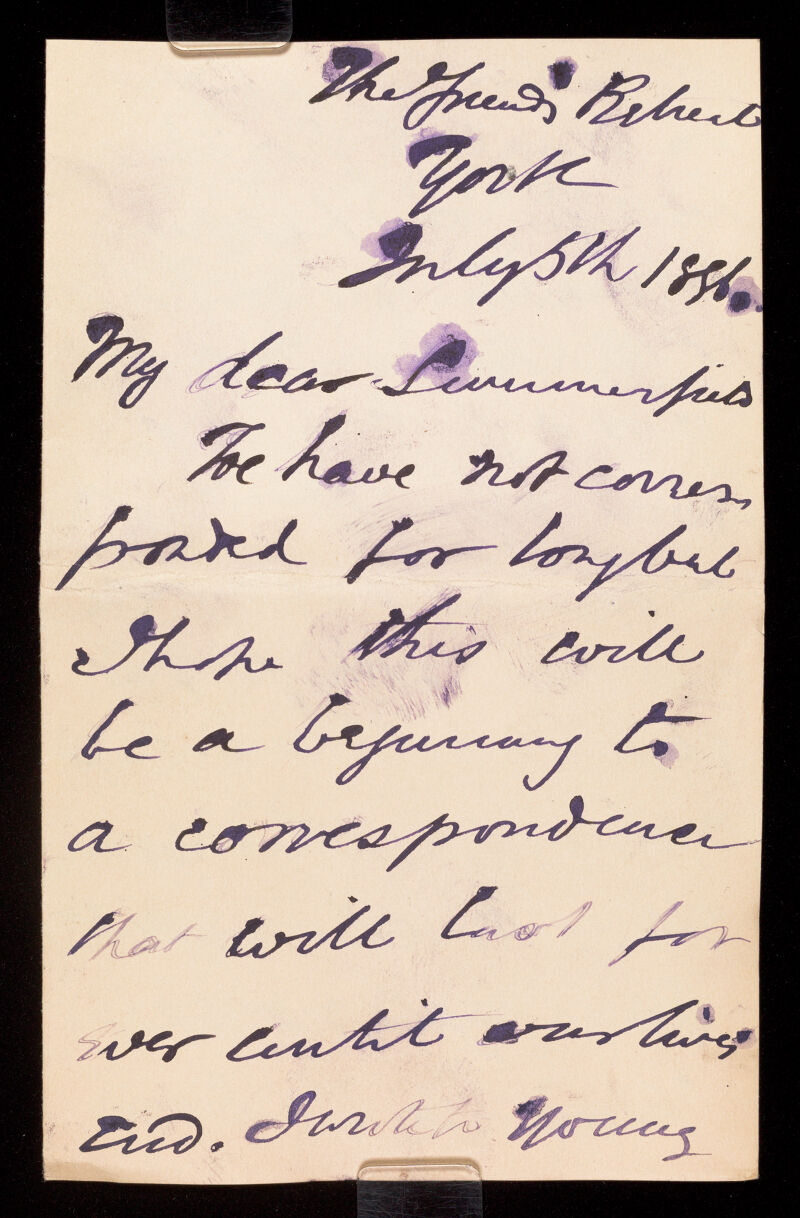 The Friends Retreat
York
July 5th 1896.
My dear Summerfield
We have not corres
ponded for long but
I hope this will
be a beginning to
a correspondence
that will last for
ever until our lives
end. I write to young